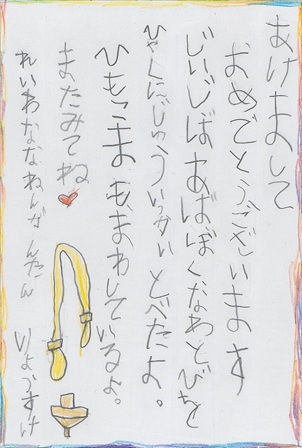 あけまして
おめでとうございます
じいじばあばぼくなわとびを
ひゃくにじゅういっかいとべたよ。
ひもこまもまわしているよ。
またみてね
れいわななねんがんたん
りょうすけ